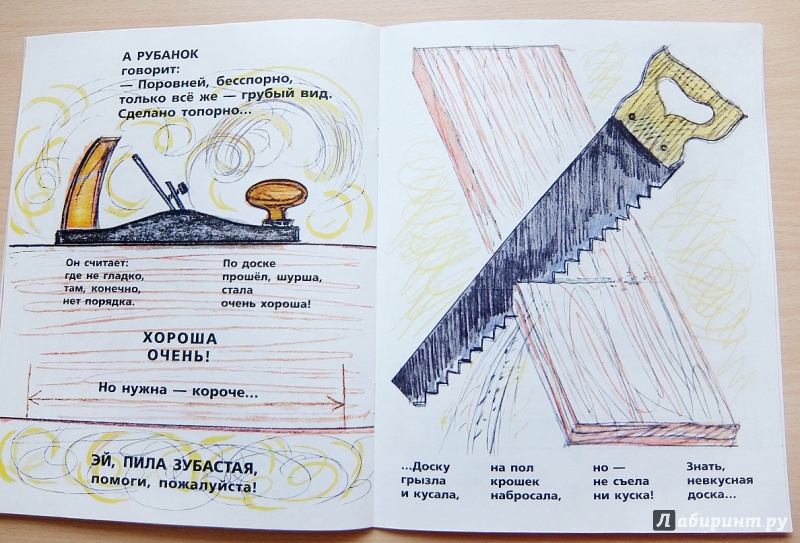 А РУБАНОК
говорит:
— Поровней, бесспорно,
только всё же — грубый вид.
Сделано топорно...
Он считает:
где не гладко,
там, конечно,
нет порядка.
По доске
прошёл, шурша,
стала
очень хороша!
ХОРОША
ОЧЕНЬ!
Но нужна — короче...
ЭЙ, ПИЛА ЗУБАСТАЯ,
помоги, пожалуйста!
...Доску
грызла
и кусала,
на пол
крошек
набросала,
но —
не съела
ни куска!
Знать,
невкусная
доска...
Лабиринт.ру